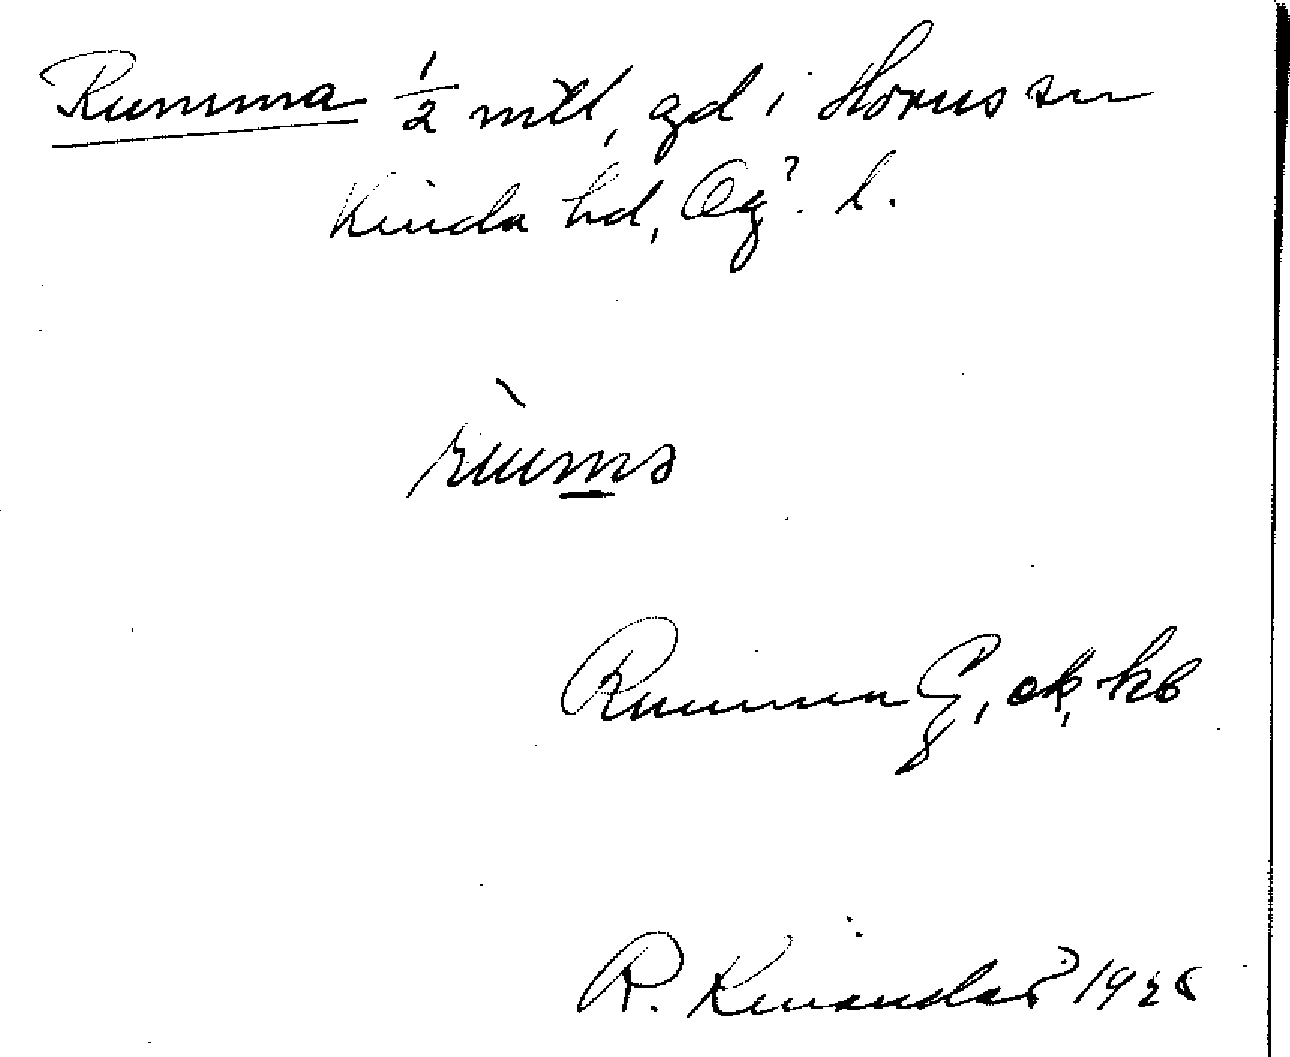 Rumma 1/2 mtl, gd i Horns sn
Kinda hd, Ög. l.
Rumma G, ek, kb
R. Kinander 1928